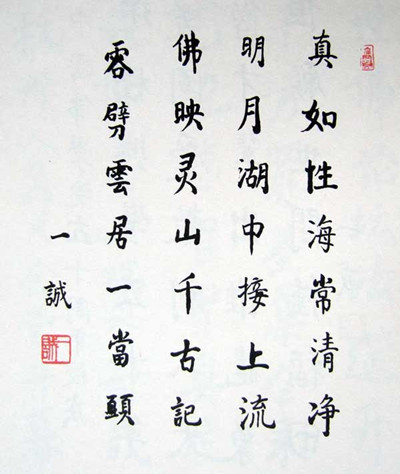 真如性海常清净
明月湖中接上流
佛映灵山千古記
劈雲居一當頭
一誠
一誠